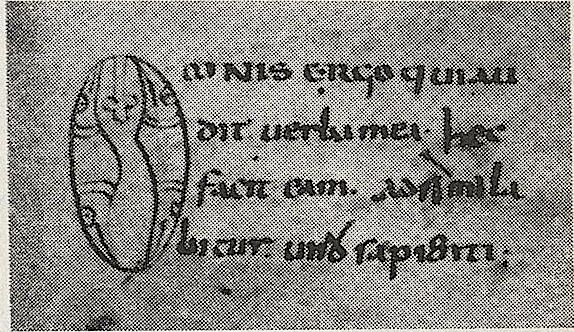 OMNIS ERGO qui au
dit uerbu mei. hec
facit eum. adsimila
bitur. uiro sapienti;